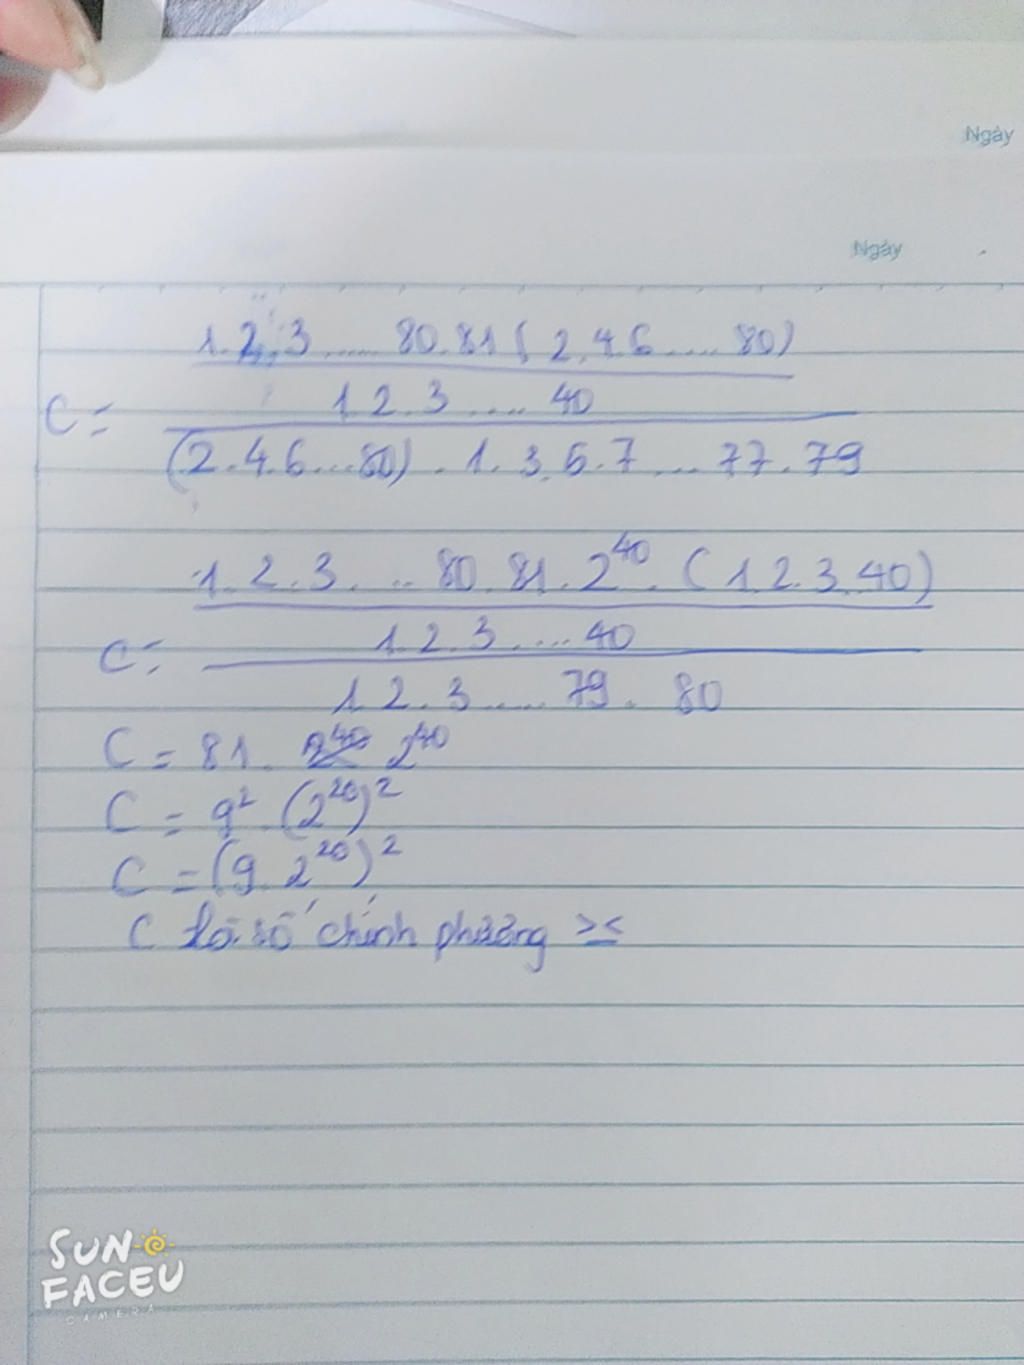 Ngày
Ngày
1.2.3.....80.81(2.4.6....80)
1.2.3....40
C=
(2.4.6...80).1.3.5.7...77.79
1.2.3.....80.81.2^40.(1.2.3..40)
1.2.3....40
C=
1.2.3.....79.80
C = 81. 2^40
C = 9^2.(2^20)^2
C = (9.2^20)^2
C là số chính phương ><
SUN
FACEU
CAMERA